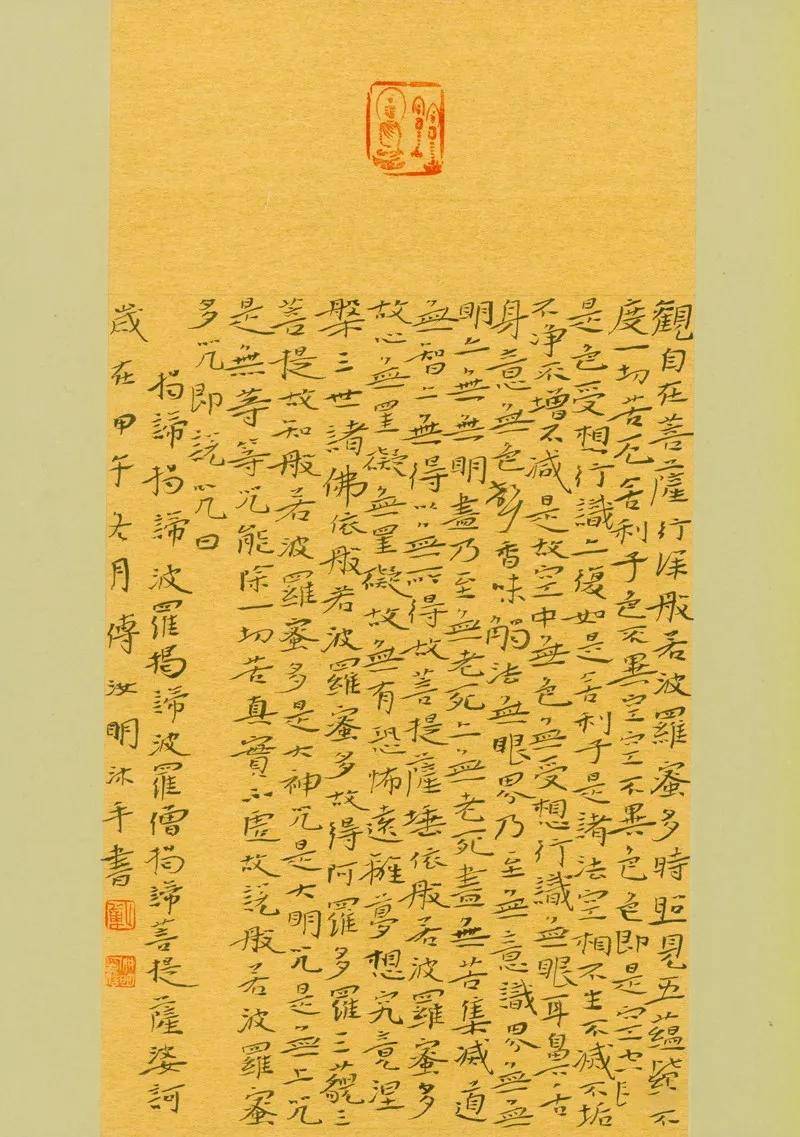 觀自在菩薩行深般若波羅蜜多時照見五蘊皆空
度一切苦厄舍利子色不異空空不異色色即是空空即
是色受想行識亦復如是舍利子是諸法空相不生不滅不垢
不淨不增不減是故空中無色無受想行識無眼耳鼻舌
身意無色聲香味觸法無眼界乃至無意識界無無
明亦無無明盡乃至無老死亦無老死盡無苦集滅道
無智亦無得以無所得故菩提薩埵依般若波羅蜜多
故心無罣礙無罣礙故無有恐怖遠離夢想究竟涅
槃三世諸佛依般若波羅蜜多故得阿羅多羅三藐三
菩提故知般若波羅蜜多是大神咒是大明咒是無上咒
是無等等咒能除一切苦真實不虛故說般若波羅蜜
多咒即說咒曰
揭諦揭諦波羅揭諦波羅僧揭諦菩提薩婆訶
歲在甲午冬月傅汝明沐手書